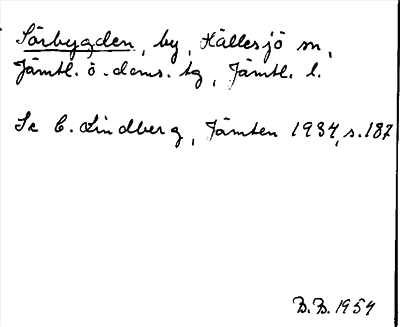 Sörbygden, by, Hällesjö sn,
Jämtl. ö. doms. tg, Jämtl. l.
Se C. Lindberg, Jämten 1934, s. 187
B.B. 1954